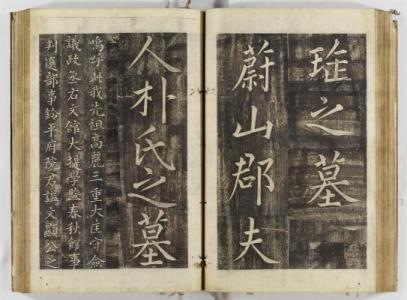 珤之墓
蔚山郡夫
人朴氏之墓
嗚呼此我先祖高麗三重大匡守僉
議政丞右文館大提學監春秋館事
判選部事鈴平府院君諡文顯公之